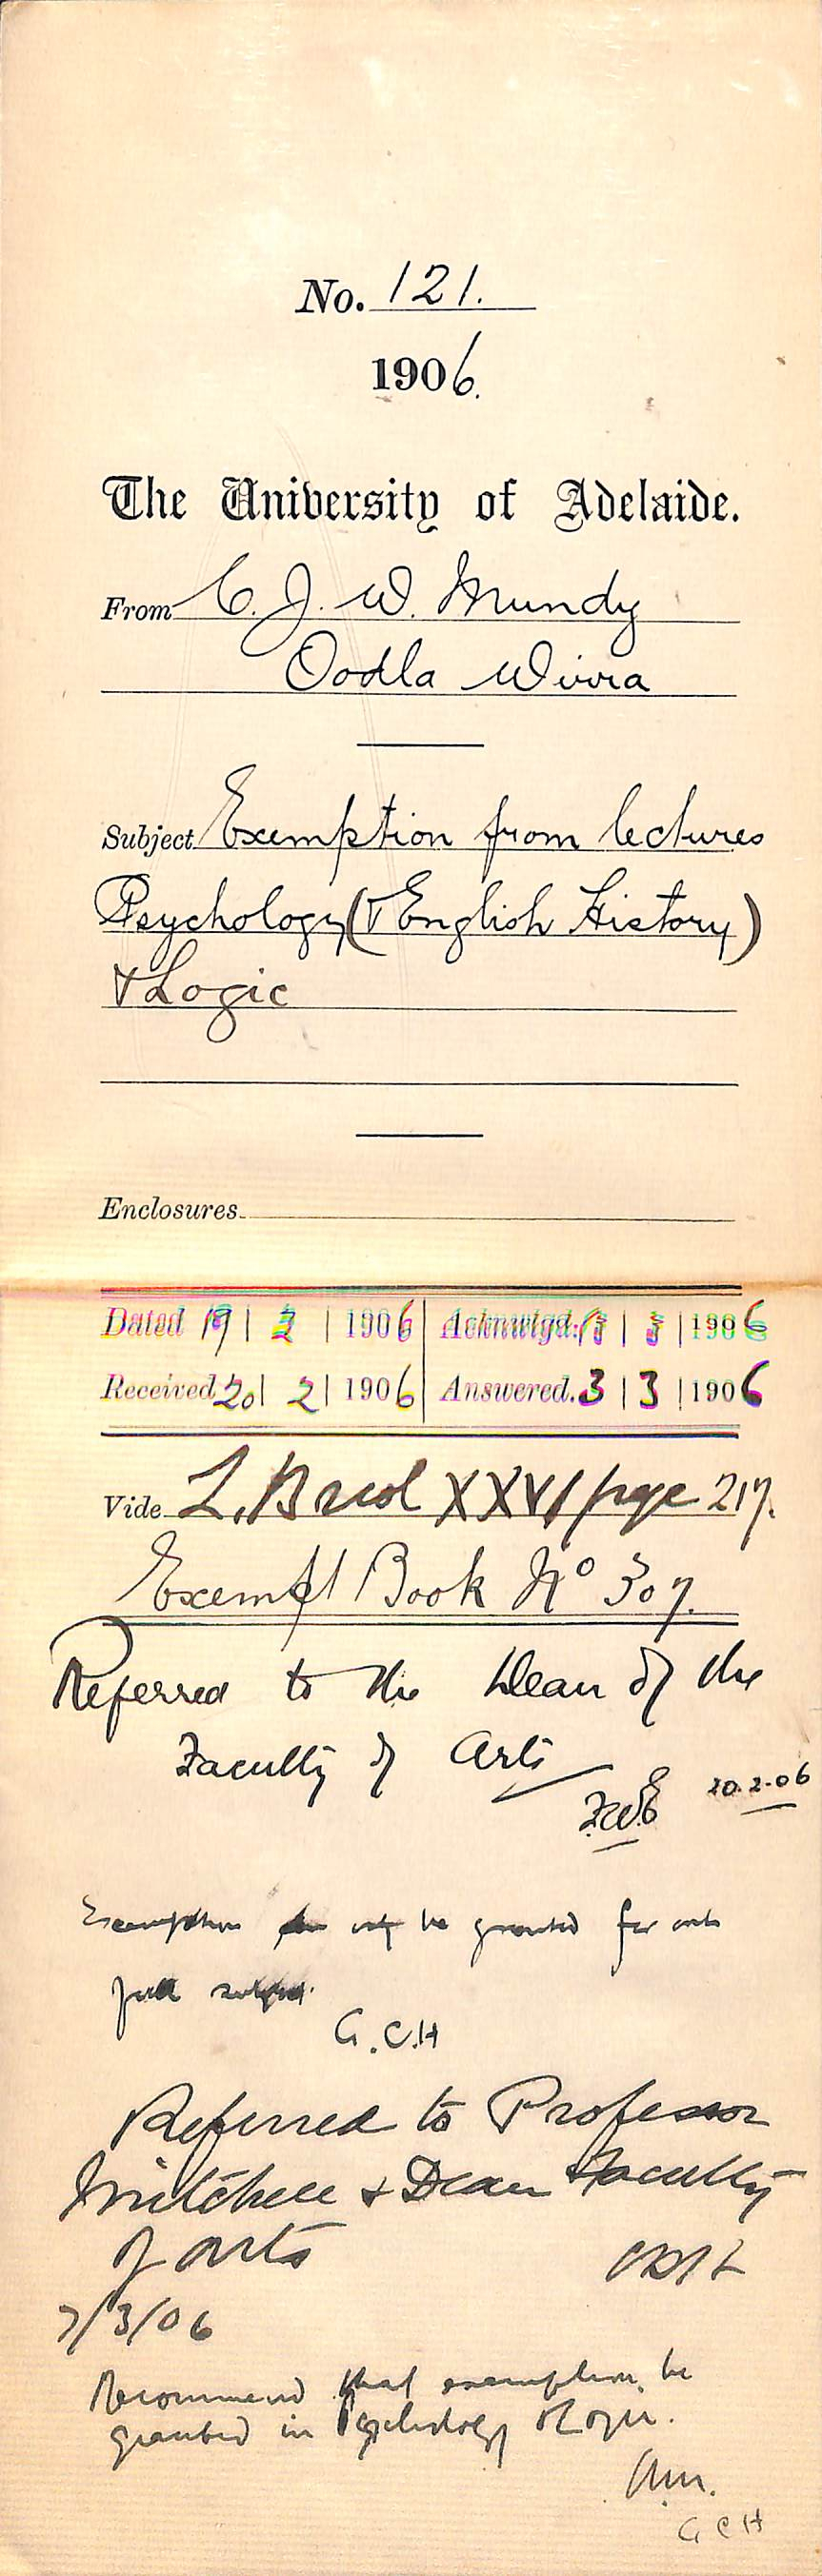 No. 121.
1906.
The University of Adelaide.
From C. J. W. Mundy
Oodla Wirra
Subject Exemption from lectures
Psychology (& English History)
& Logic
Enclosures
Dated 19 | 2 | 1906 Acknwlgd. | 3 | 1906
Received 20 | 2 | 1906 Answered. 3 | 3 | 1906
Vide L. B vol XXVI page 217.
Exempt Book No 307.
Referred to the Dean of the
Faculty of Arts
F.W.E 20.2.06
Exemption only be granted for one
full subject.
G.C.H
Referred to Professor
Mitchell & Dean Faculty
of Arts
7/3/06
Recommend that exemption be
granted in Psychology & Logic.
W.M.
G C H